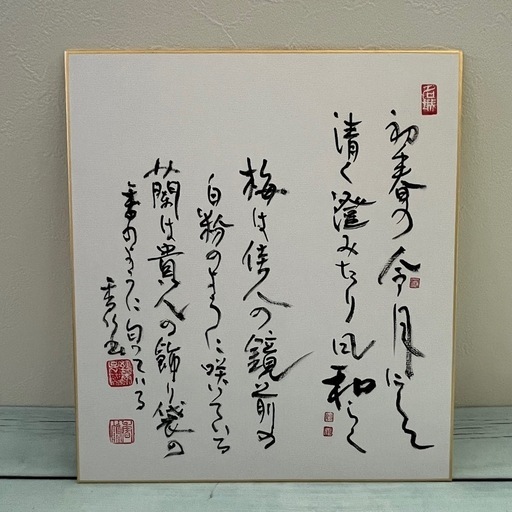 初春の令月にして
清く澄みたり風和らぐ
梅は佳人の鏡前の
白粉のように咲いている
蘭は貴人の飾り袋の
香のように匂っている